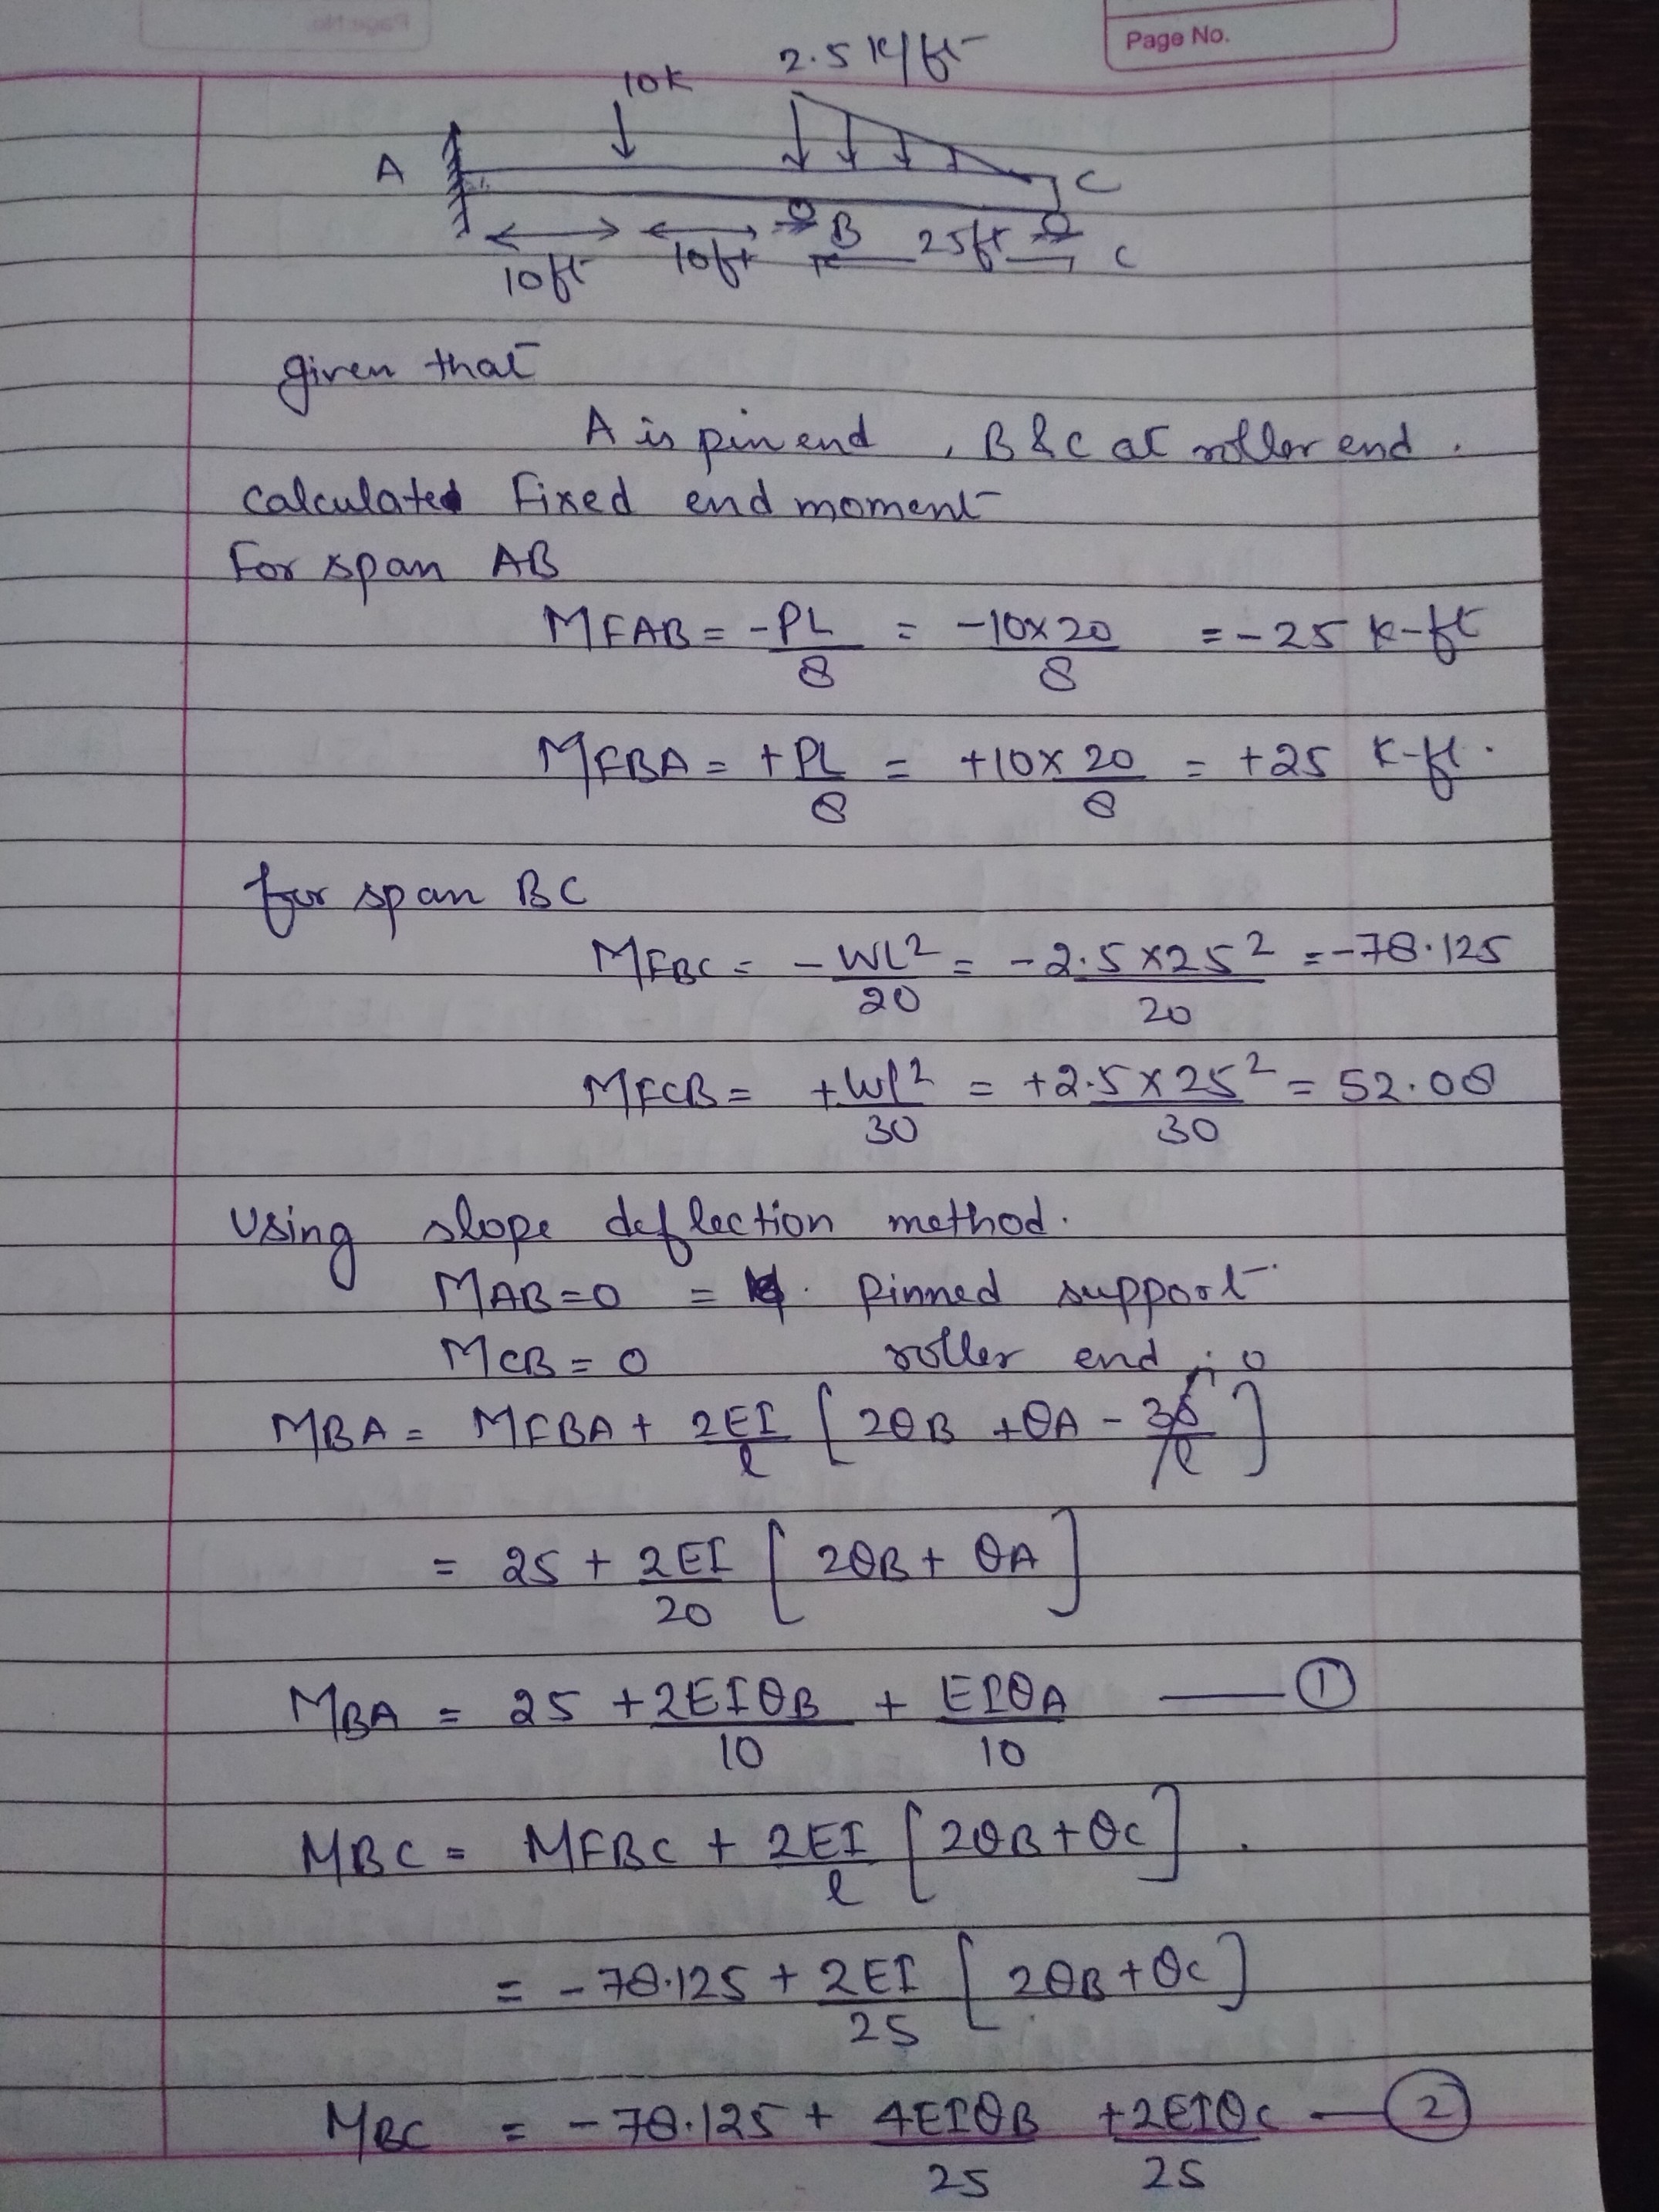 Page No.
2.5 K/ft
10K
A
C
B
25ft
C
10ft
10ft
given that
A is pin end , B & C at roller end .
Calculated Fixed end moment
For span AB
MFAB = -PL/8 = -10×20/8 = -25 K-ft
MFBA = +PL/8 = +10×20/8 = +25 K-ft.
for span BC
MFBC = -WL²/20 = -2.5×25²/20 = -78.125
MFCB = +Wl²/30 = +2.5×25²/30 = 52.08
Using slope deflection method.
MAB=0 = Pinned support
MCB=0 roller end
MBA = MFBA + 2EI/l [2θB + θA - 3δ/l] 0
= 25 + 2EI/20 [2θB + θA]
MBA = 25 + 2EIθB/10 + EIθA/10 — ①
MBC = MFBC + 2EI/l [2θB + θC] .
= -78.125 + 2EI/25 [2θB + θC]
MBC = -78.125 + 4EIθB/25 + 2EIθC/25 — ②